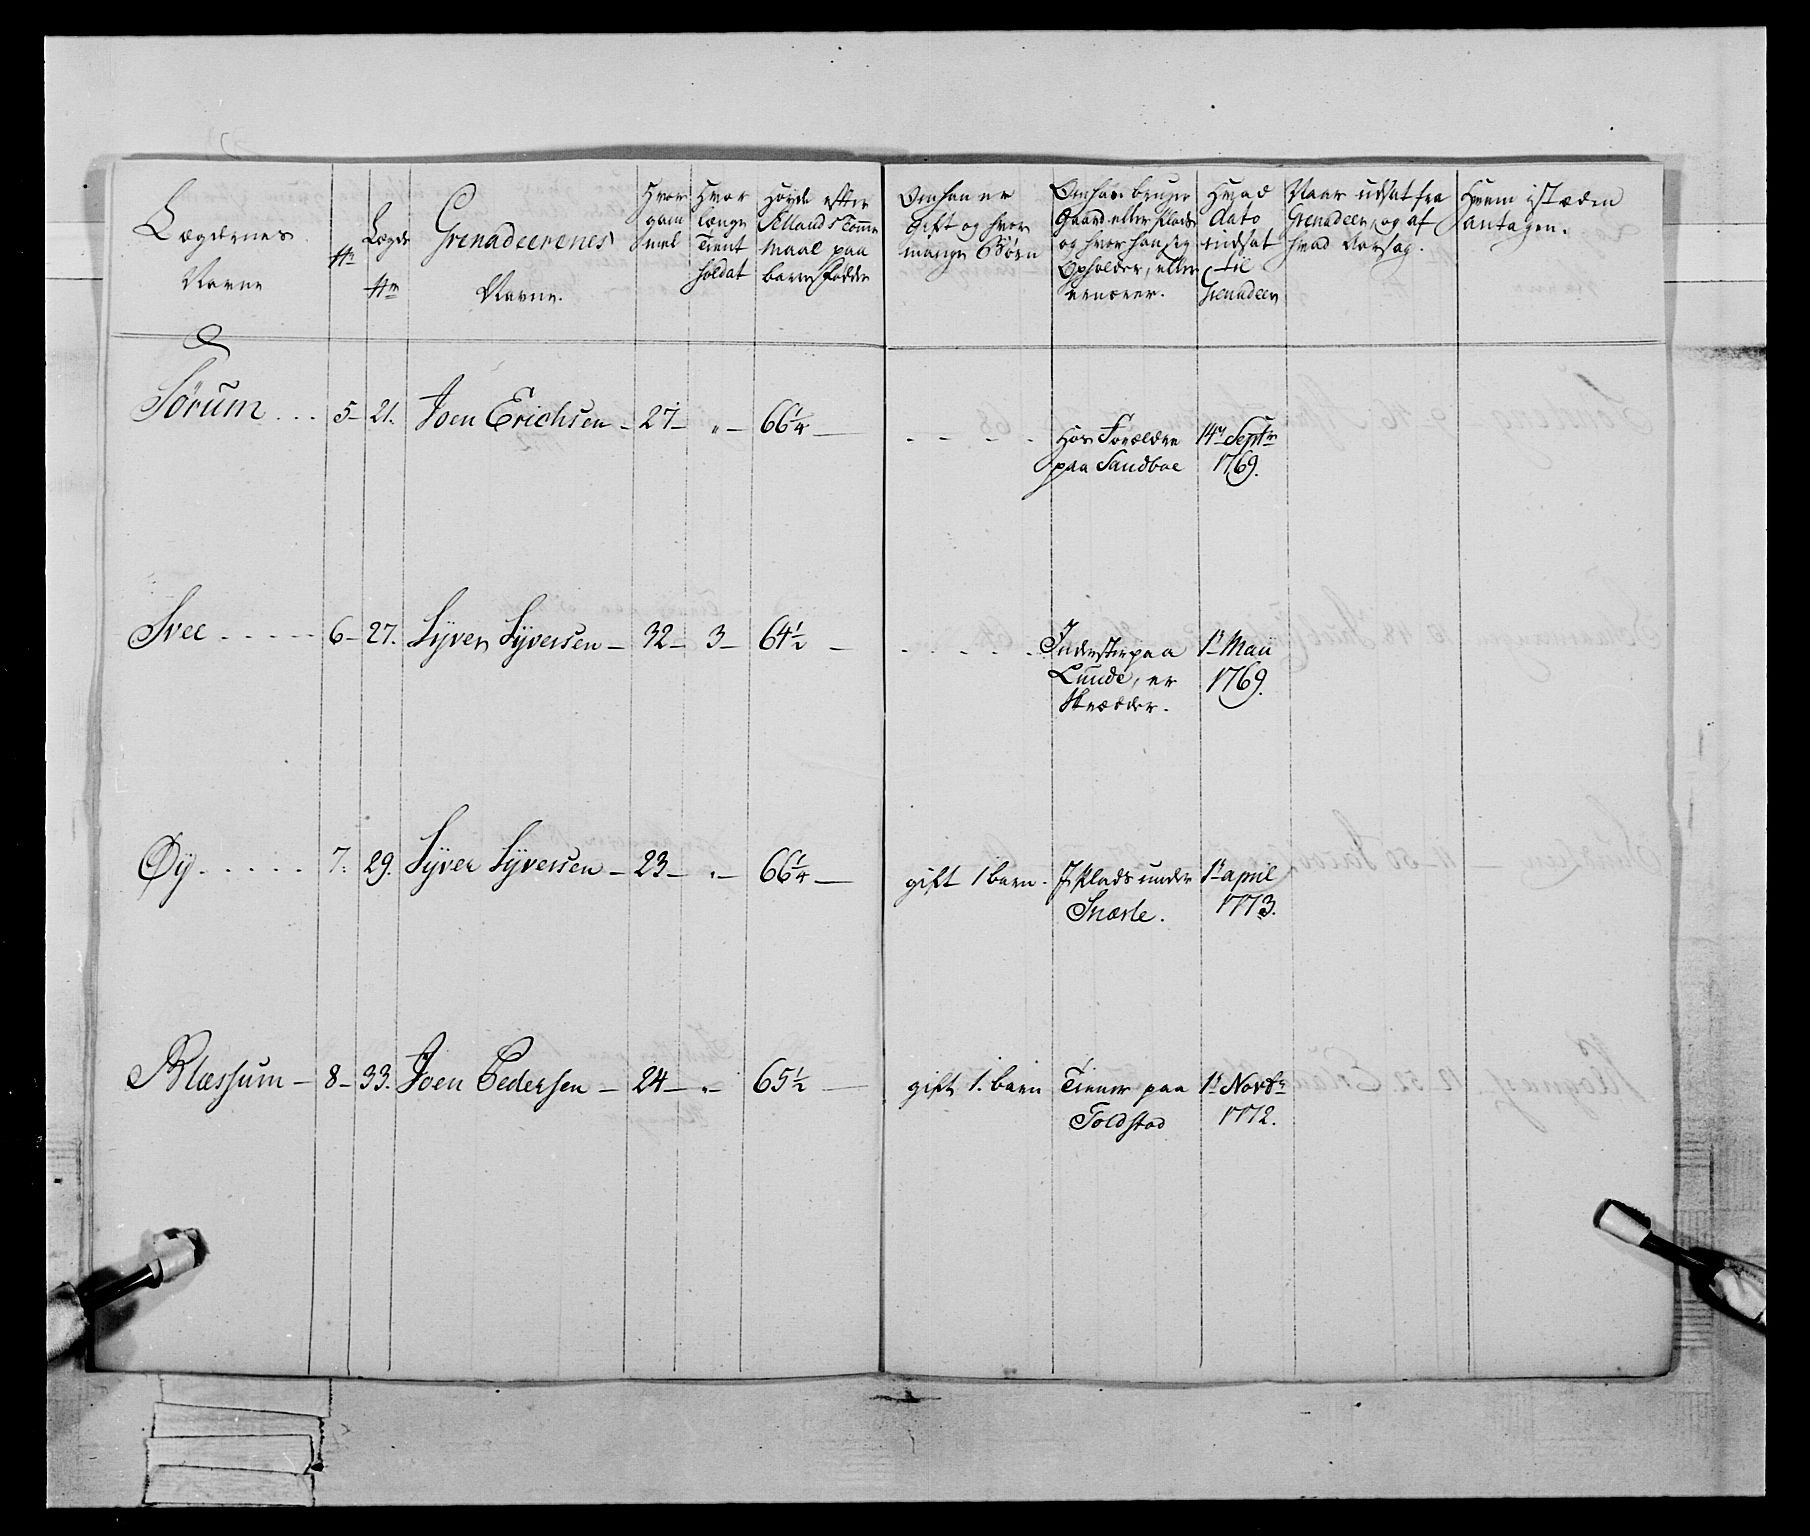 Lægdernes Navne
No
Lægde No
Grenadeerenes Navne.
Hvor gammel
Hvor længe tient Soldat
Høyde efter Sællands Tomme Maal paa bare Fødder
Om han er Gift og hvor mange Børn
Om han bruger Gaard eller Plads og hvor han sig Opholder, eller ernærer.
Hvad dato udsat til Grenadeer
Naar udsat fra Grenadeer, og af hvad Aarsag.
Hvem i stæden antagen.
Sørum . . . 5- 21. Joen Erichsen - 27- „ - 66 1/4 - - - - - Hos Forældre 14de Septr
paa Sandboe 1769.
Svee - - - - - 6- 27. Syver Syversen - 32- 3- 64 1/2 - - - - - Inderst paa 1te Maii
Lunde, er 1769.
Skrædder.
Øÿ . . . . . 7. 29. Syver Syversen - 23- „ - 66 1/4 - gift 1 barn. I Plads under 1te april
Snærle. 1773.
Blæssum - 8- 33. Joen Pedersen - 24- „ - 65 1/2 - gift 1. barn Tiener paa 1te Novbr
Toldstad 1772.